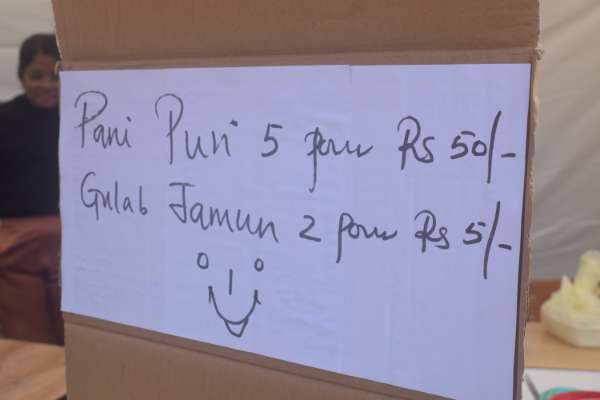 Pani Puri 5 pour Rs 50/-
Gulab Jamun 2 pour Rs 5/-